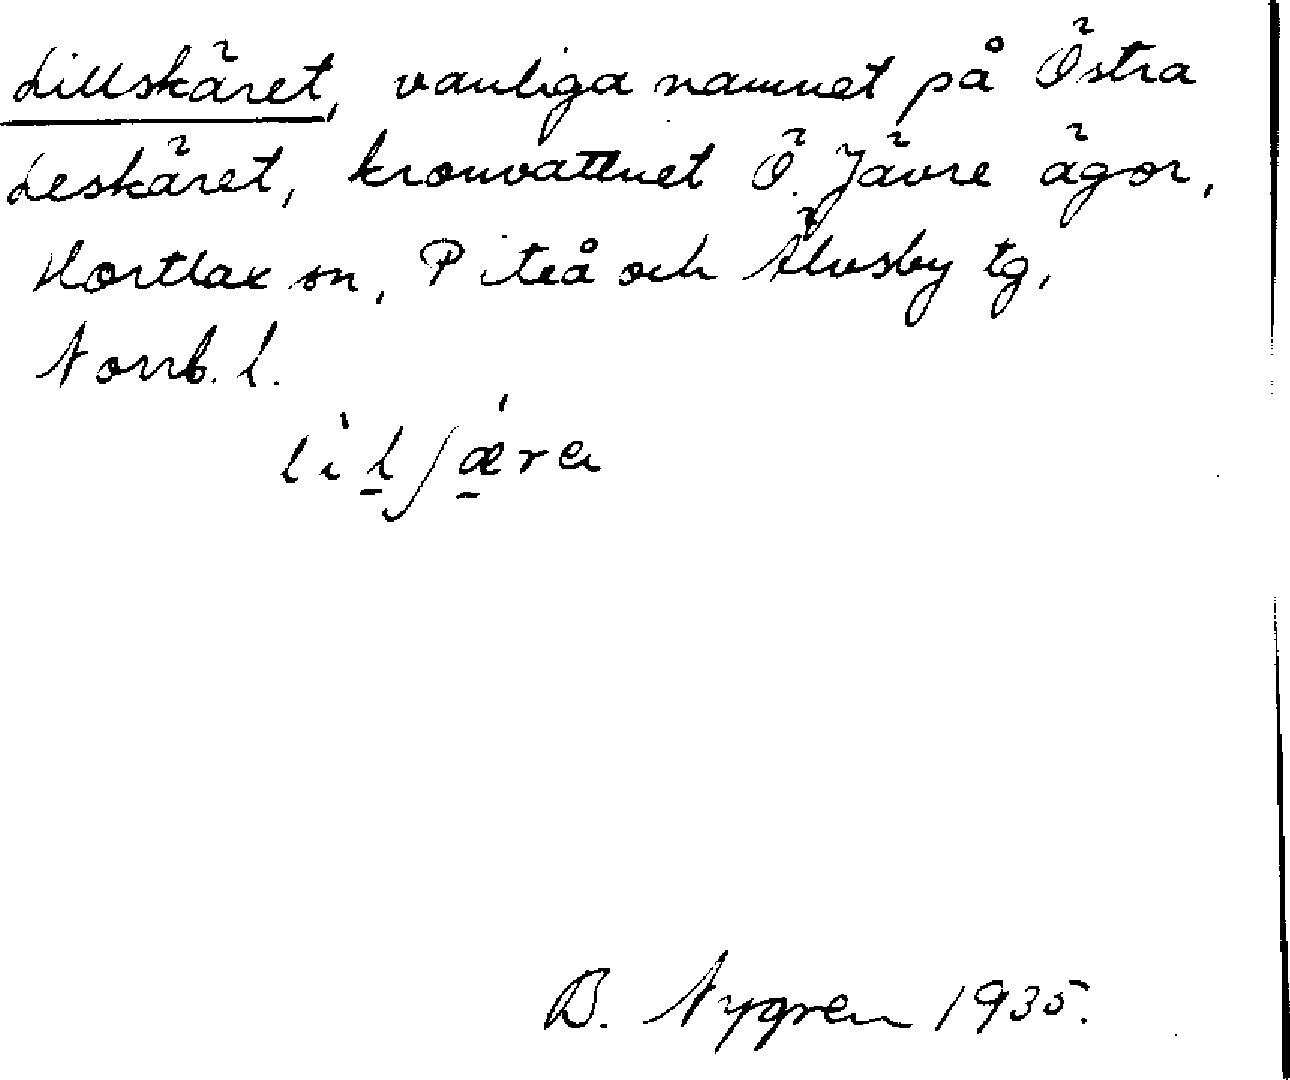 Lillskäret, vanliga namnet på Östra
Leskäret, kronvattnet Ö. Jävre ägor,
Hortlax sn, Piteå och Älvsby tg,
Norrb. l.
lìlʃǽra
B. Nygren 1935.